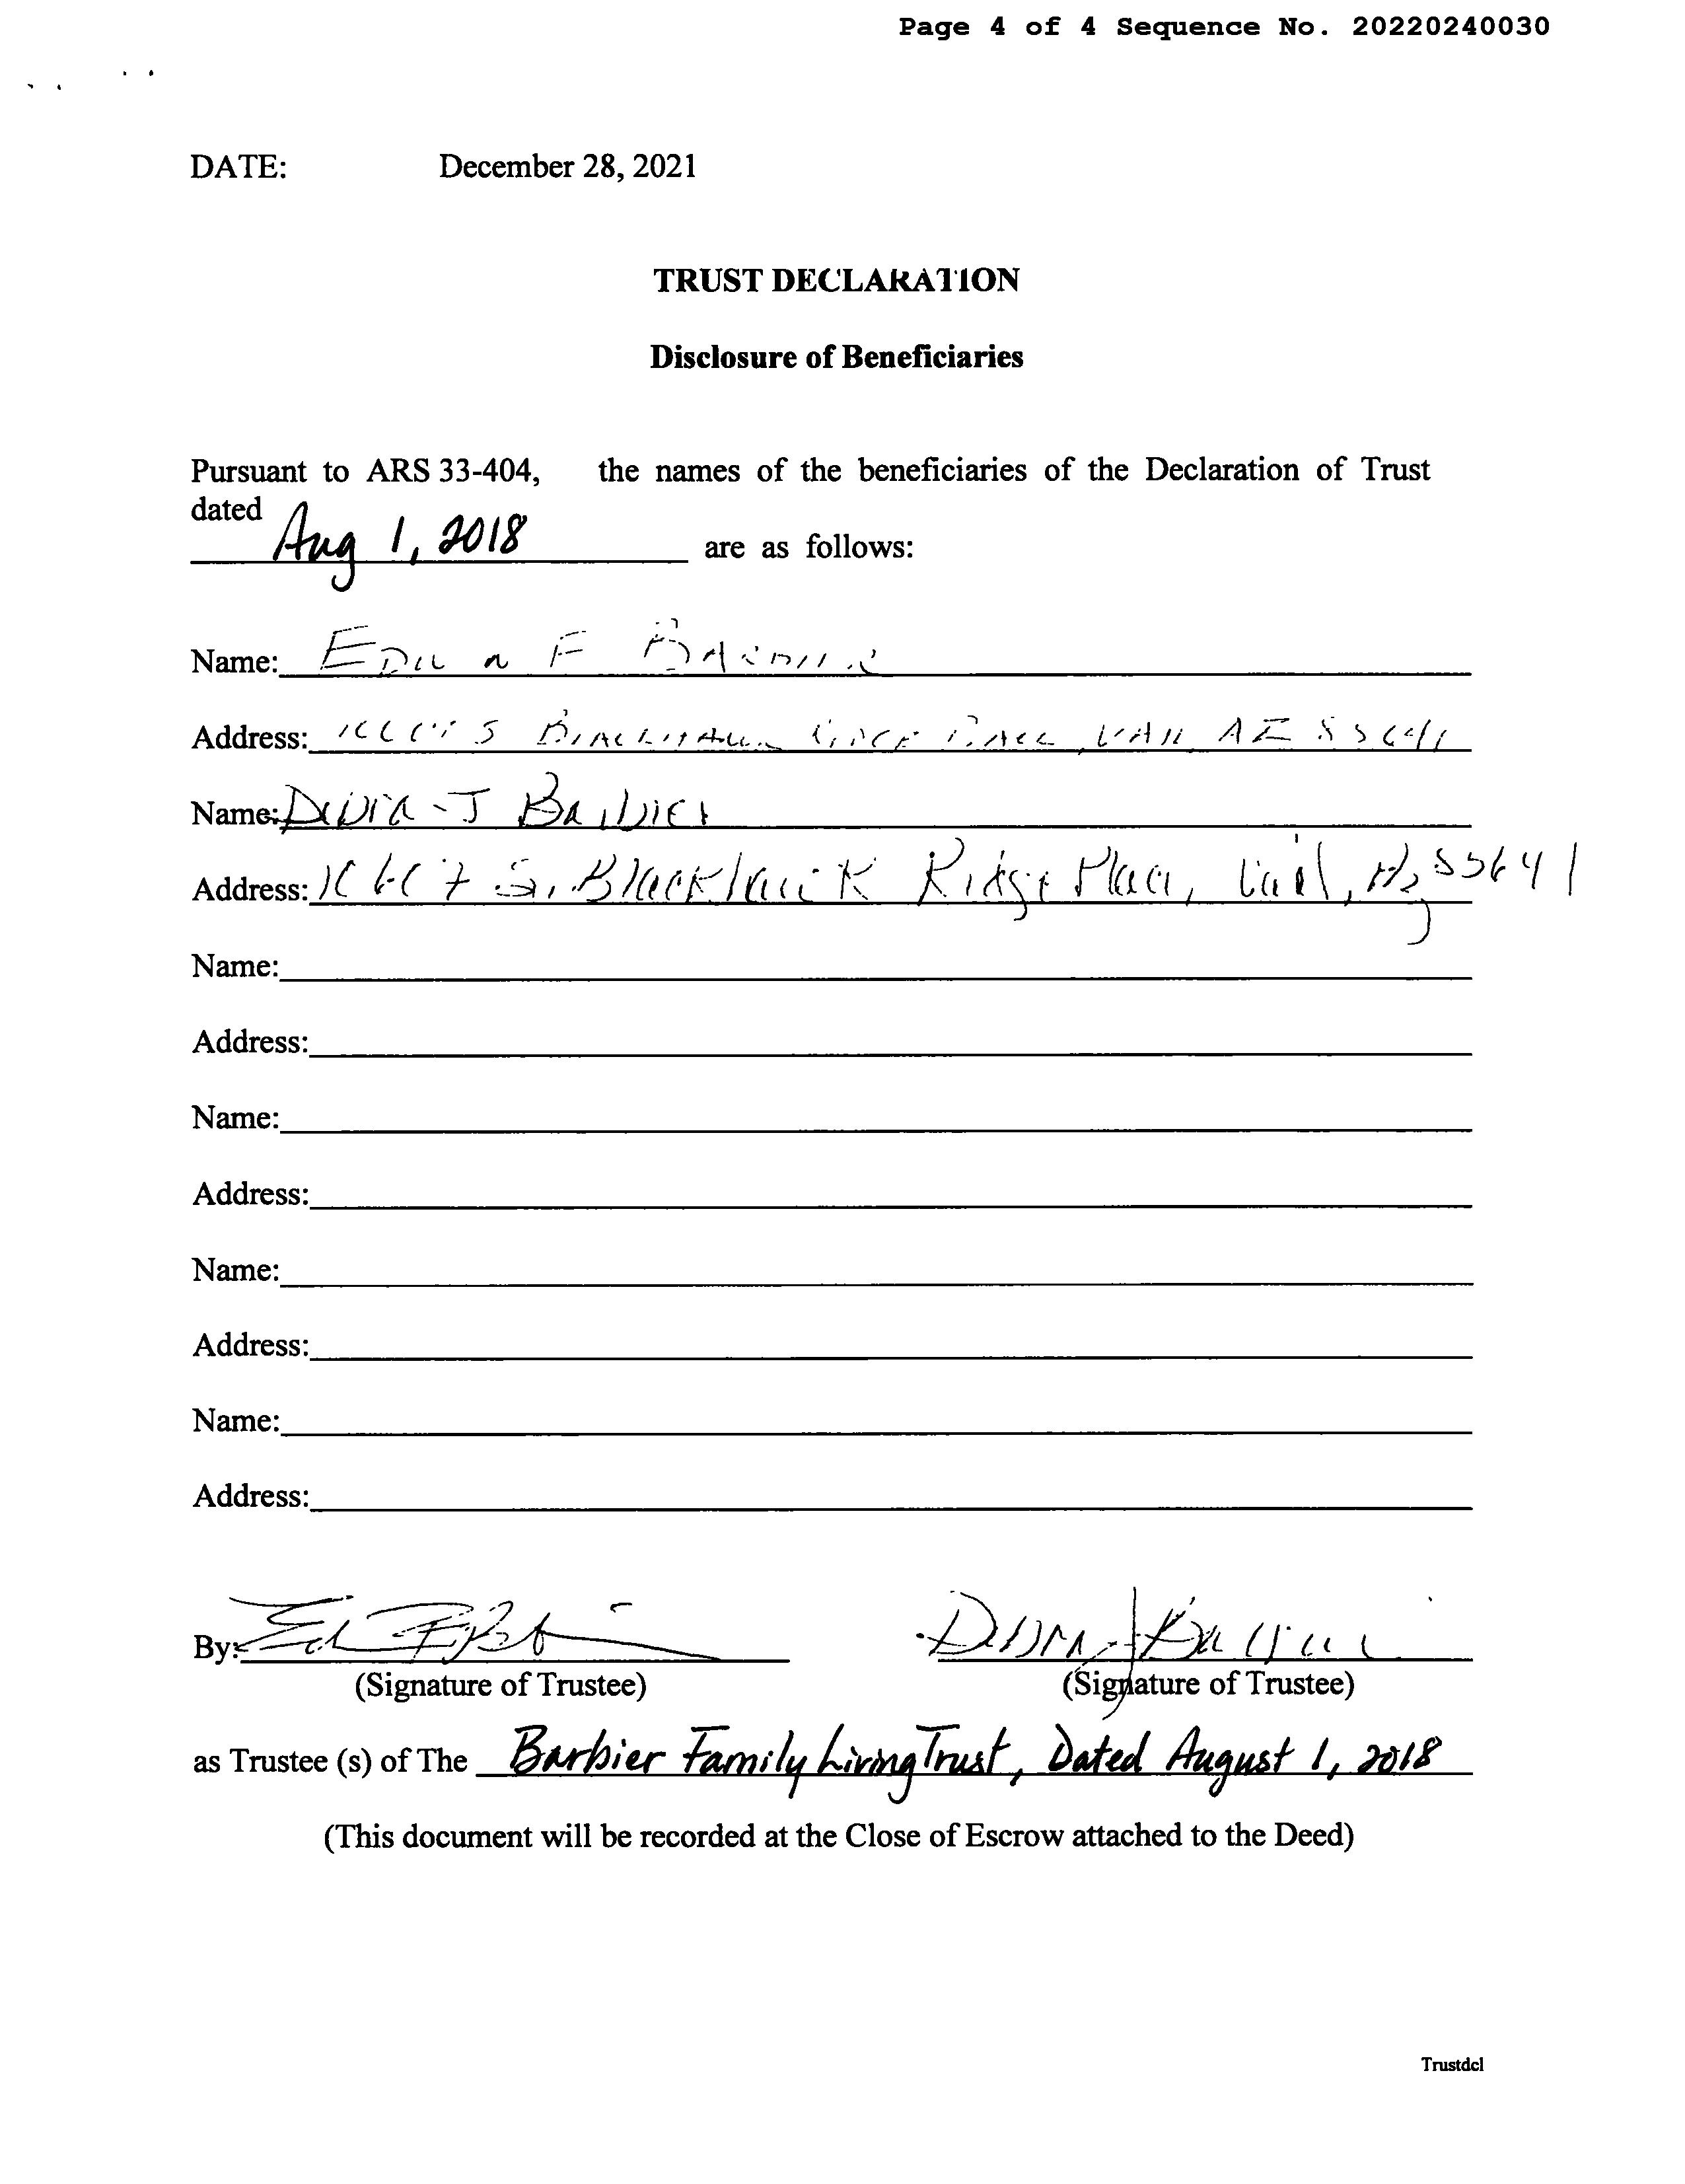 Page 4 of 4 Sequence No. 20220240030
DATE: December 28, 2021
TRUST DECLARATION
Disclosure of Beneficiaries
Pursuant to ARS 33-404, the names of the beneficiaries of the Declaration of Trust
dated
Aug 1, 2018 are as follows:
Name: F
Address: S AZ
Name: J Barbier
Address: S. Ridge Place, Vail, Az 85641
Name:
Address:
Name:
Address:
Name:
Address:
Name:
Address:
By:
(Signature of Trustee) (Signature of Trustee)
as Trustee (s) of The Barbier Family Living Trust, Dated August 1, 2018
(This document will be recorded at the Close of Escrow attached to the Deed)
Trustdcl